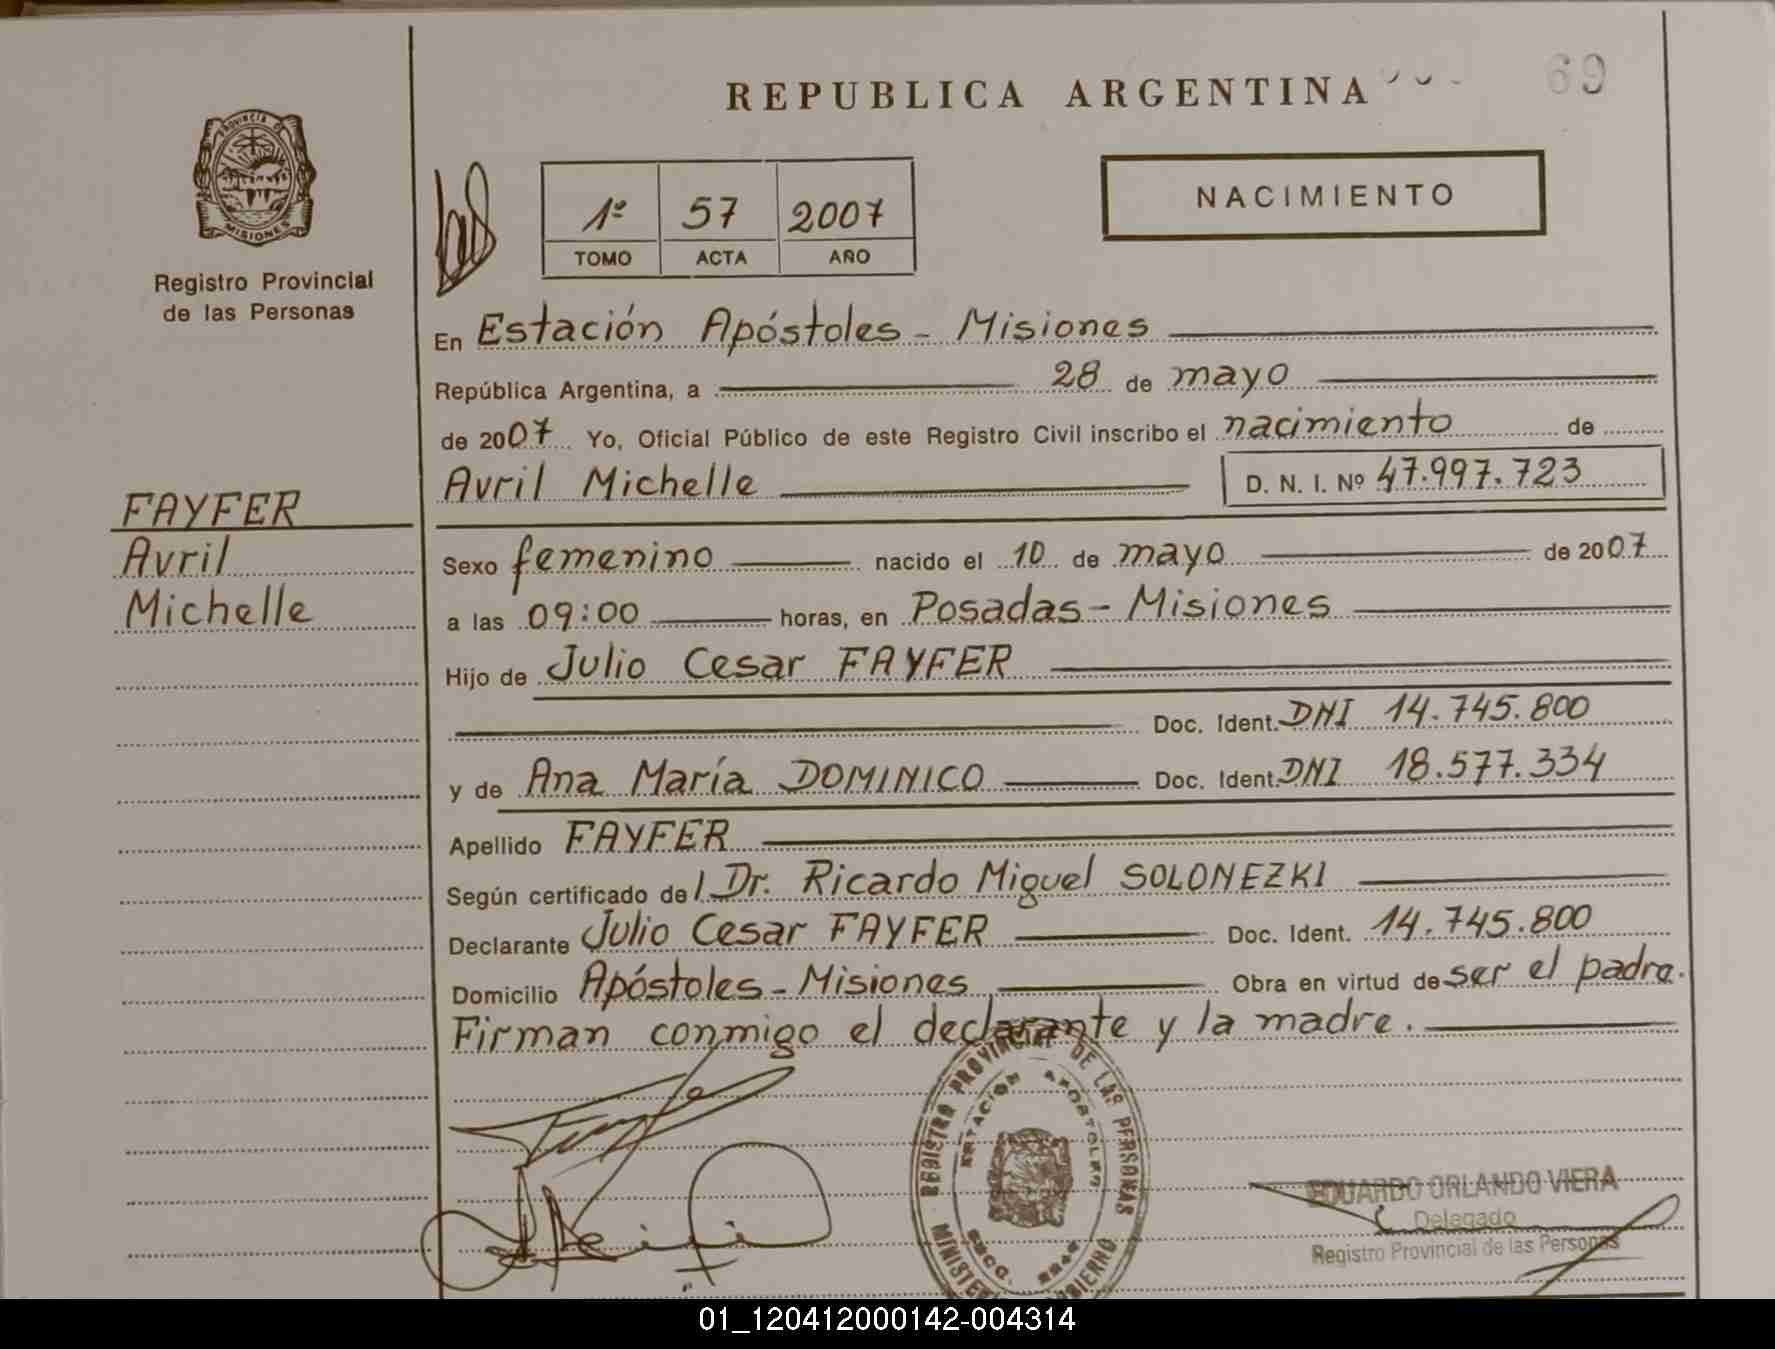 REPUBLICA ARGENTINA
69
PROVINCIA DE
MISIONES
Registro Provincial
de las Personas
1º 57 2007
TOMO ACTA AÑO
NACIMIENTO
En Estación Apóstoles - Misiones
República Argentina, a 28 de mayo
de 2007 Yo, Oficial Público de este Registro Civil inscribo el nacimiento de
Avril Michelle D. N. I. Nº 47.997.723
FAYFER
Avril
Michelle
Sexo femenino nacido el 10 de mayo de 2007
a las 09:00 horas, en Posadas - Misiones
Hijo de Julio Cesar FAYFER
Doc. Ident. DNI 14.745.800
y de Ana María DOMINICO Doc. Ident. DNI 18.577.334
Apellido FAYFER
Según certificado del Dr. Ricardo Miguel SOLONEZKI
Declarante Julio Cesar FAYFER Doc. Ident. 14.745.800
Domicilio Apóstoles - Misiones Obra en virtud de ser el padre.
Firman conmigo el declarante y la madre.
REGISTRO PROVINCIAL DE LAS PERSONAS
ESTACION APOSTOLES
EDUARDO ORLANDO VIERA
Delegado
Registro Provincial de las Personas
01_120412000142-004314